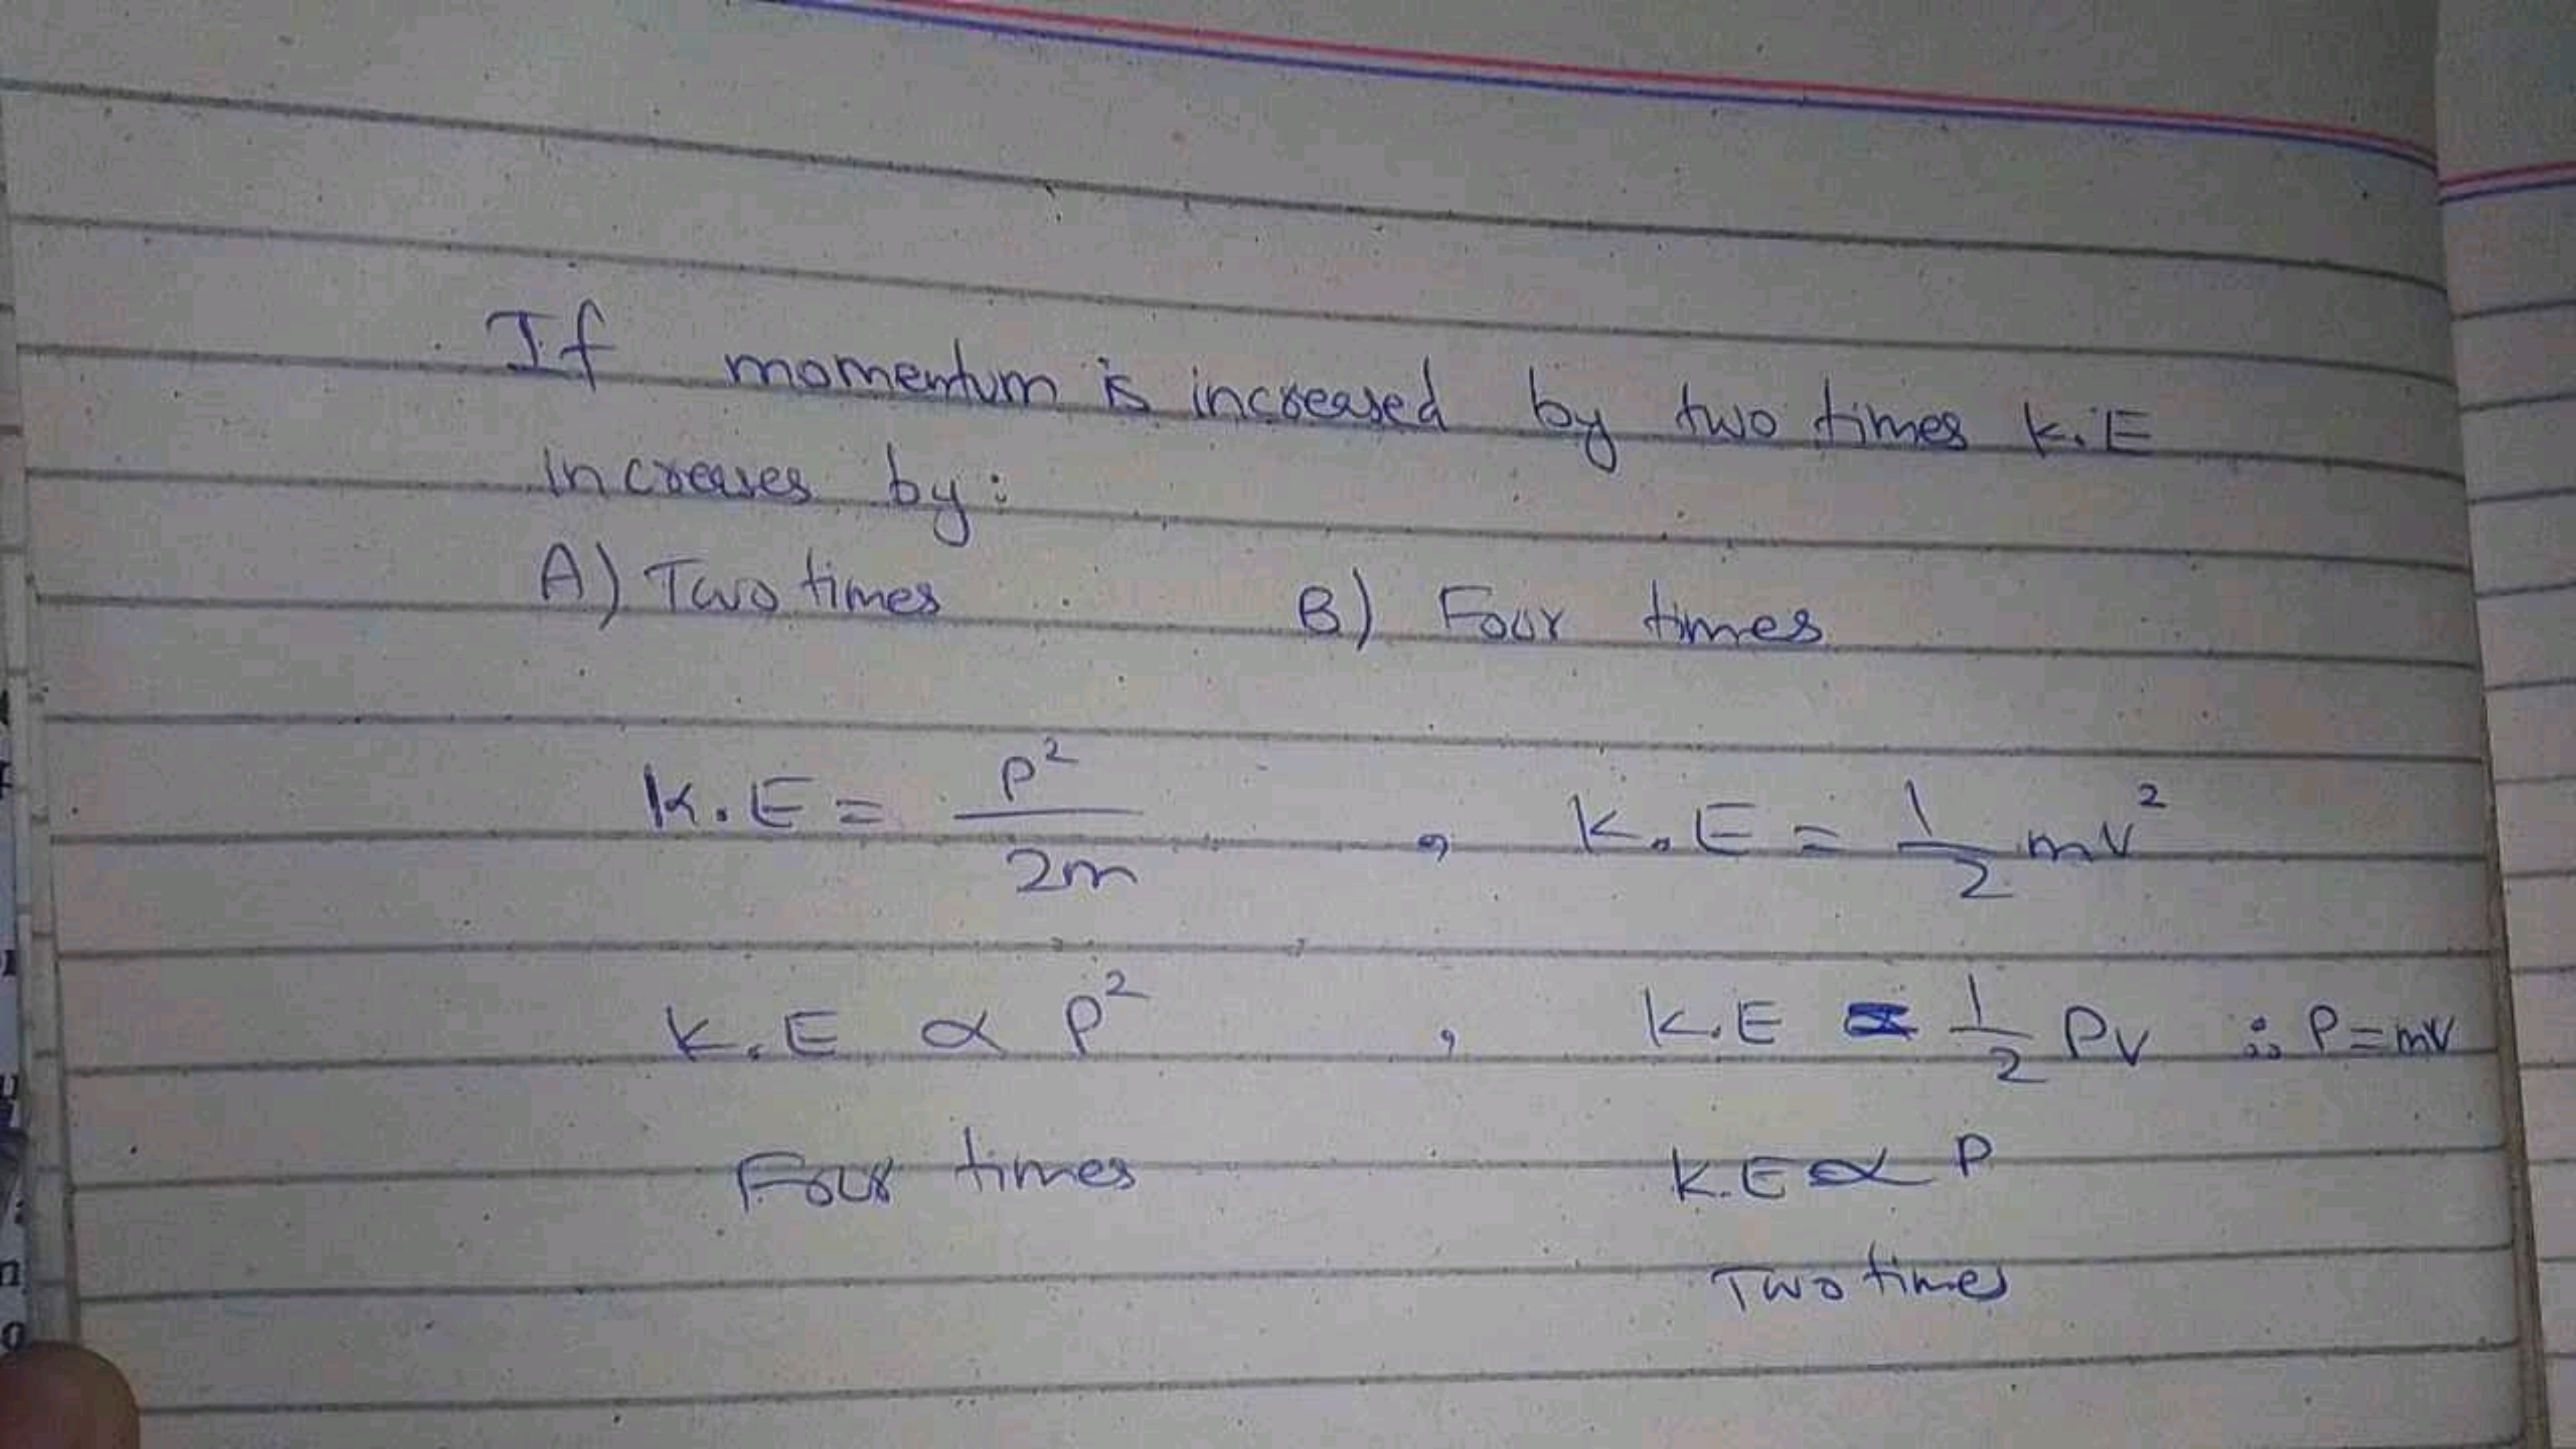 If momentum is increased by two times K.E
increases by:
A) Two times B) Four times
K.E = P²/2m , K.E = 1/2 mv²
K.E ∝ P² , K.E = 1/2 Pv ∵ P=mv
Four times K.E ∝ P
Two times